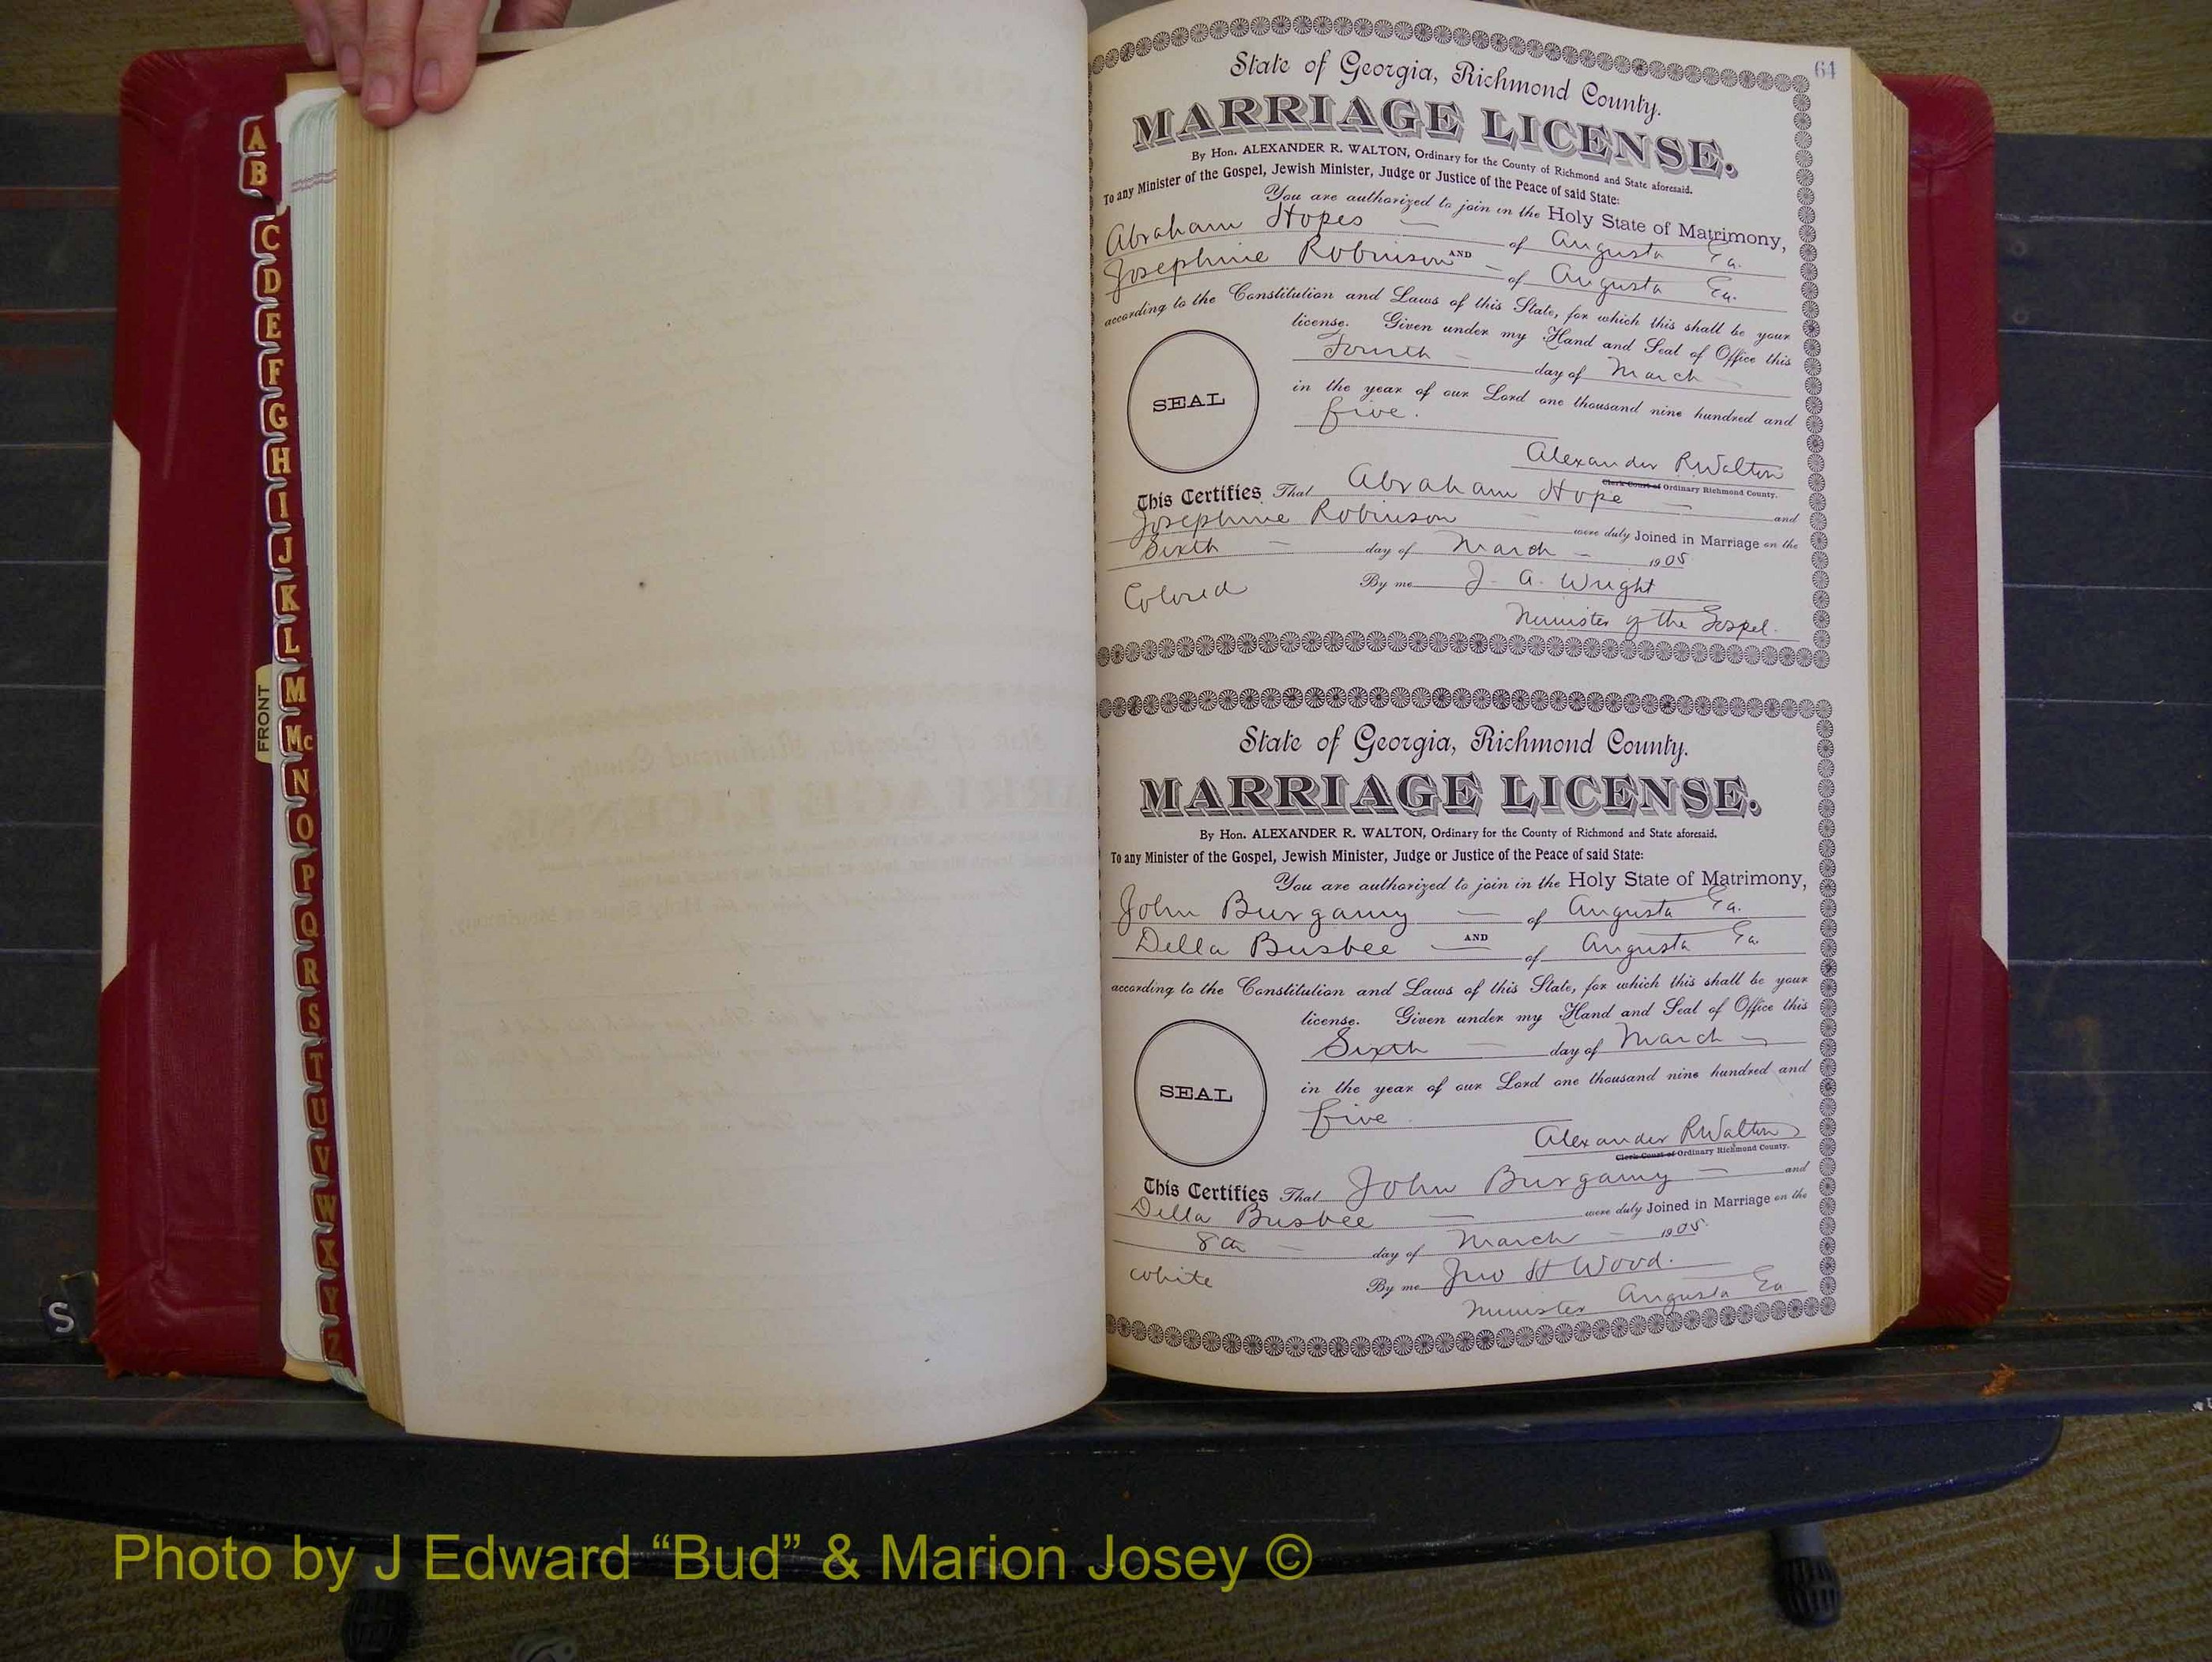 A
B
C
D
E
F
G
H
I
J
K
L
M
Mc
N
O
P
Q
R
S
T
U
V
W
X
Y
Z
FRONT
S
64
State of Georgia, Richmond County.
MARRIAGE LICENSE.
By Hon. ALEXANDER R. WALTON, Ordinary for the County of Richmond and State aforesaid.
To any Minister of the Gospel, Jewish Minister, Judge or Justice of the Peace of said State:
You are authorized to join in the Holy State of Matrimony,
Abraham Hopes — of Augusta Ga.
AND
Josephine Robinson — of Augusta Ga.
according to the Constitution and Laws of this State, for which this shall be your
license. Given under my Hand and Seal of Office this
Fourth — day of March
in the year of our Lord one thousand nine hundred and
five.
SEAL
Alexander R Walton
Clerk Court of Ordinary Richmond County.
This Certifies That Abraham Hope — and
Josephine Robinson — were duly Joined in Marriage on the
Sixth — day of March — 1905
Colored By me J. A. Wright
Minister of the Gospel.
State of Georgia, Richmond County.
MARRIAGE LICENSE.
By Hon. ALEXANDER R. WALTON, Ordinary for the County of Richmond and State aforesaid.
To any Minister of the Gospel, Jewish Minister, Judge or Justice of the Peace of said State:
You are authorized to join in the Holy State of Matrimony,
John Burgamy — of Augusta Ga.
AND
Della Busbee — of Augusta Ga
according to the Constitution and Laws of this State, for which this shall be your
license. Given under my Hand and Seal of Office this
Sixth — day of March —
in the year of our Lord one thousand nine hundred and
five
SEAL
Alexander R Walton
Clerk Court of Ordinary Richmond County.
This Certifies That John Burgamy — and
Della Busbee — were duly Joined in Marriage on the
8th — day of March — 1905
white By me Jno H Wood.
Minister Augusta Ga
Photo by J Edward “Bud” & Marion Josey ©